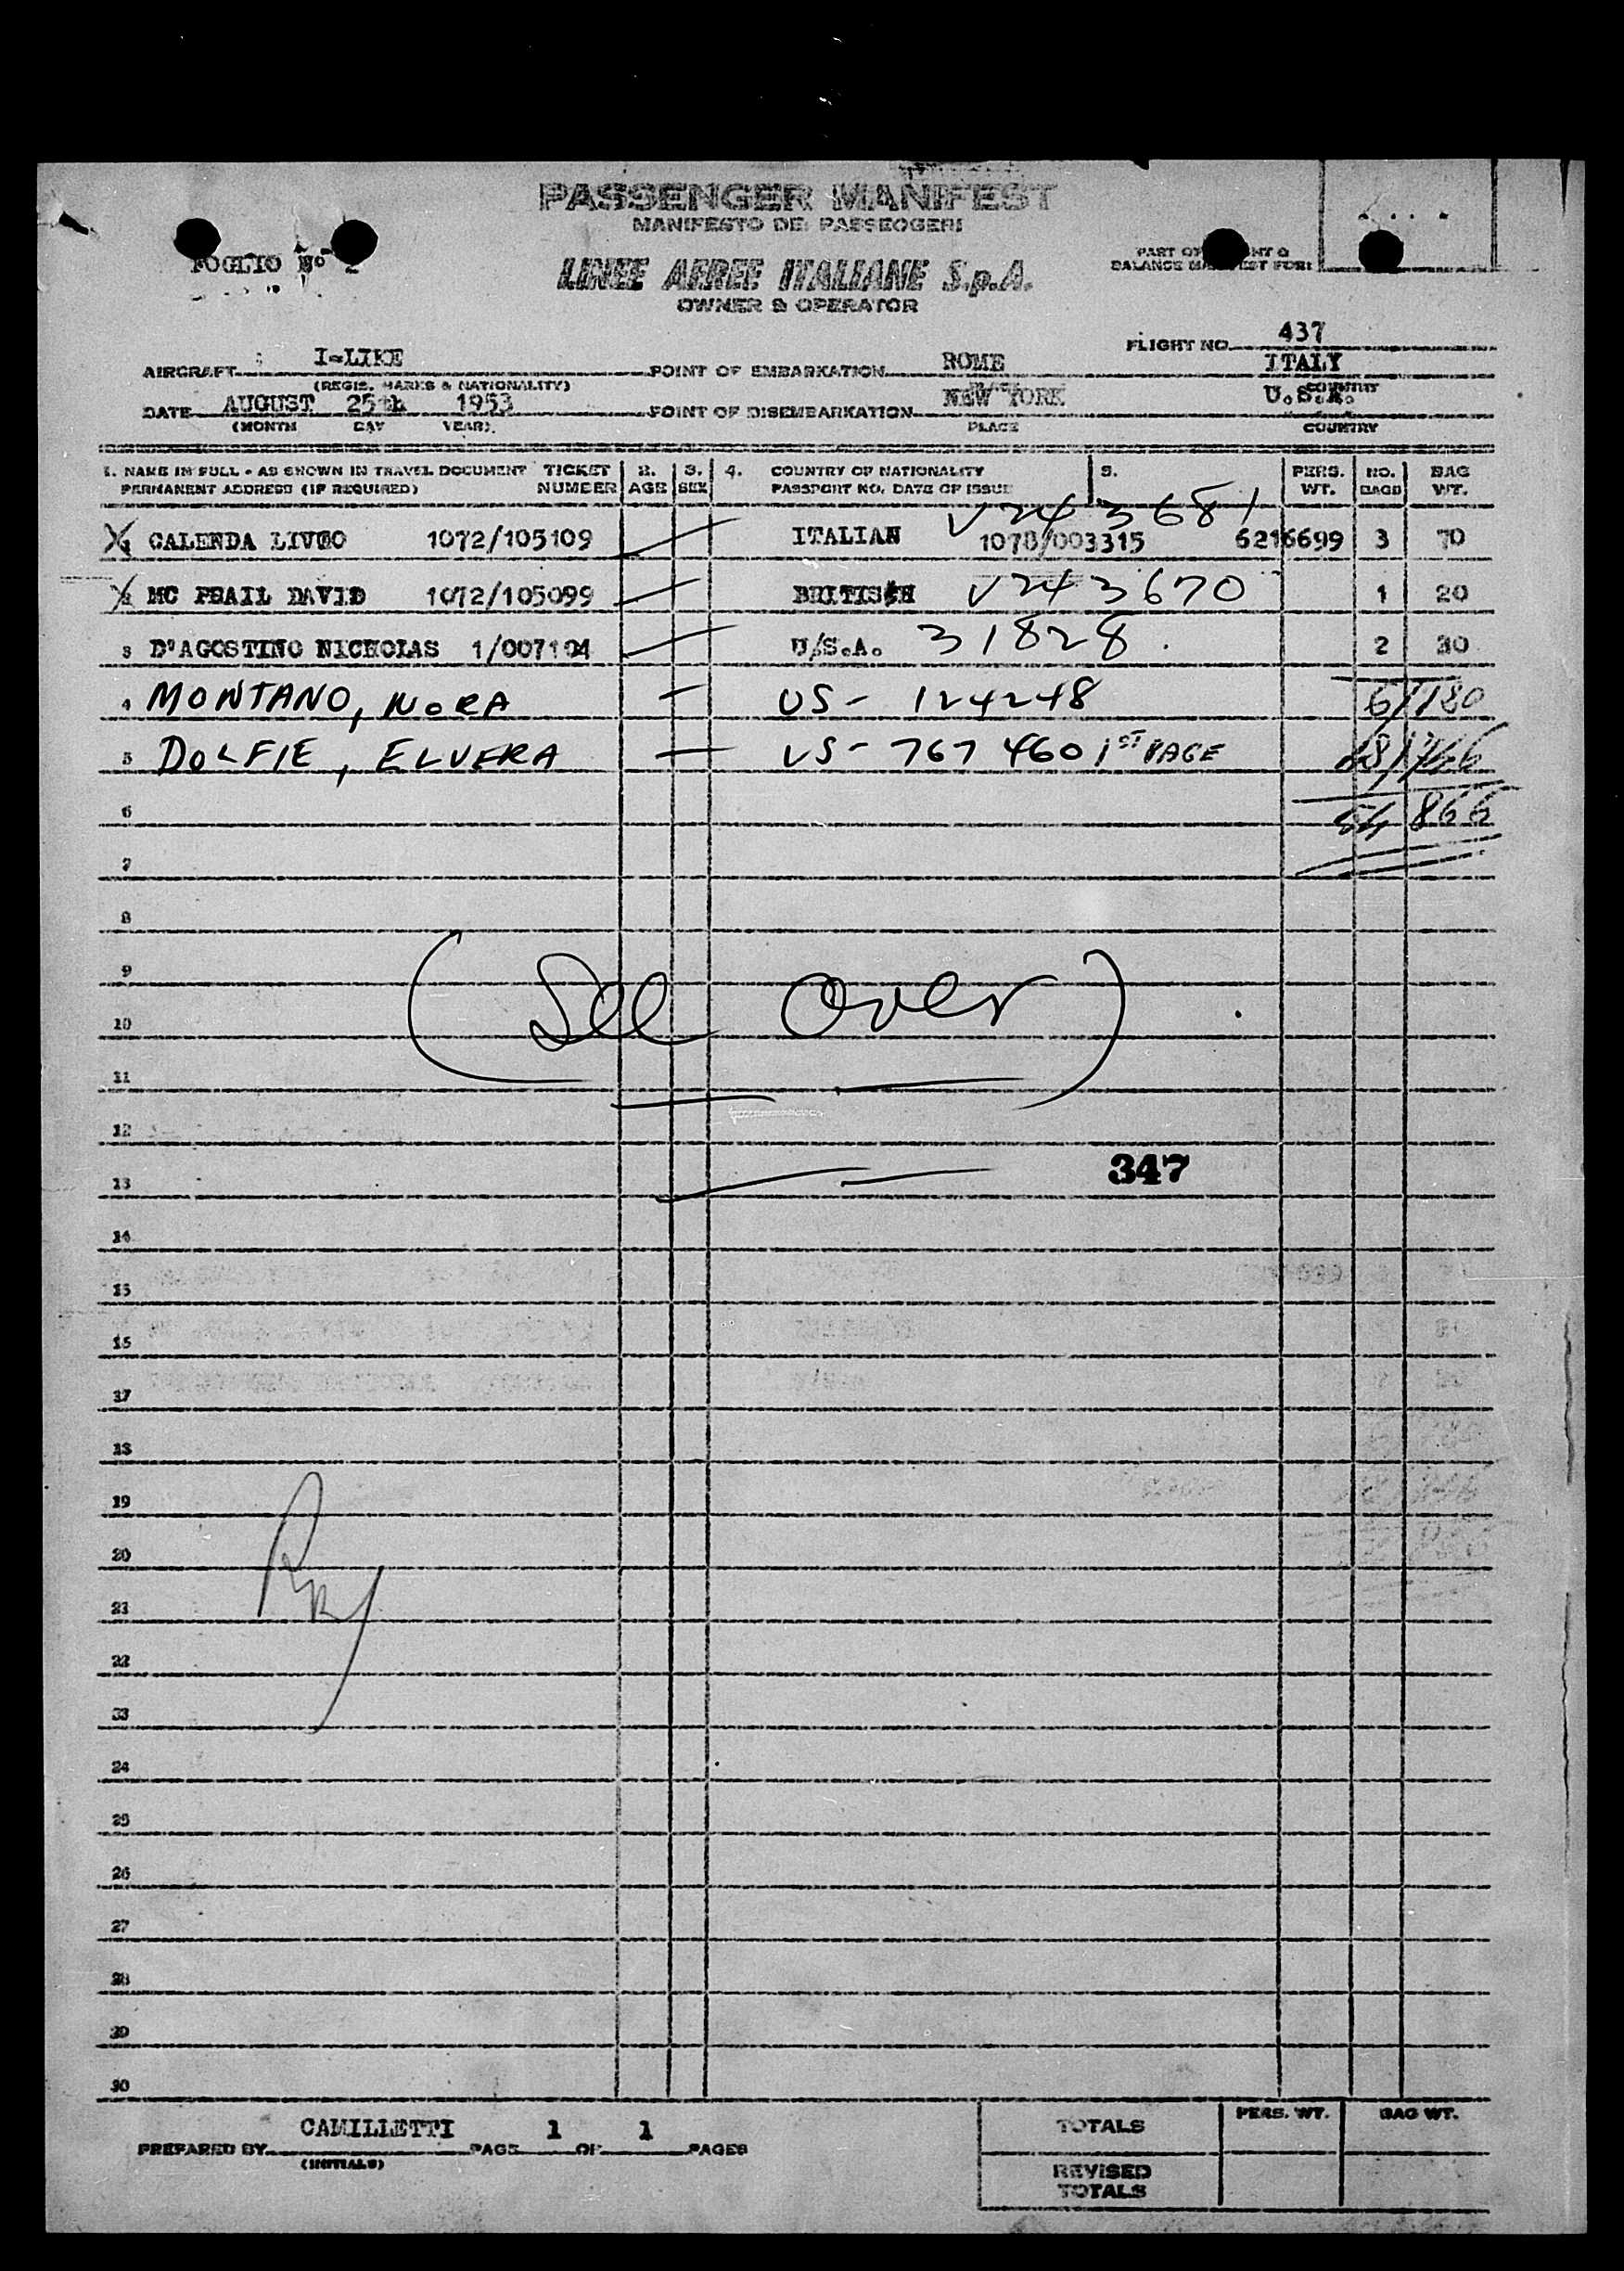 PASSENGER MANIFEST
MANIFESTO DEI PASSEGGERI
FOGLIO No 2
LINEE AEREE ITALIANE S.p.A.
OWNER & OPERATOR
PART OF
BALANCE MANIFEST FOR:
FLIGHT NO. 437
AIRCRAFT I-LIKE
(REGIS. MARKS & NATIONALITY)
POINT OF EMBARKATION ROME ITALY
PLACE COUNTRY
DATE AUGUST 25th 1953
(MONTH DAY YEAR)
POINT OF DISEMBARKATION NEW YORK U.S.A.
PLACE COUNTRY
1. NAME IN FULL - AS SHOWN IN TRAVEL DOCUMENT TICKET 2. 3. 4. COUNTRY OF NATIONALITY 5. PERS. NO. BAG
PERMANENT ADDRESS (IF REQUIRED) NUMBER AGE SEX PASSPORT NO. DATE OF ISSUE WT. BAGS WT.
V243681
1 CALENDA LIVGO 1072/105109 ITALIAN 1078/003315 6216699 3 70
2 MC PHAIL DAVID 1072/105099 BRITISH V243670 1 20
3 D'AGOSTINO NICHOLAS 1/007104 U/S.A. 31828. 2 30
4 MONTANO, NORA US- 124248 6/180
5 DOLFIE, ELVERA US- 767460 1ST PAGE
6 54 866
7
8
9
(See over)
10
11
12
347
13
14
15
16
17
18
19
20
21
22
23
24
25
26
27
28
29
30
PREPARED BY CAMILLETTI PAGE 1 OF 1 PAGES
(INITIALS)
PERS. WT. BAG WT.
TOTALS
REVISED
TOTALS